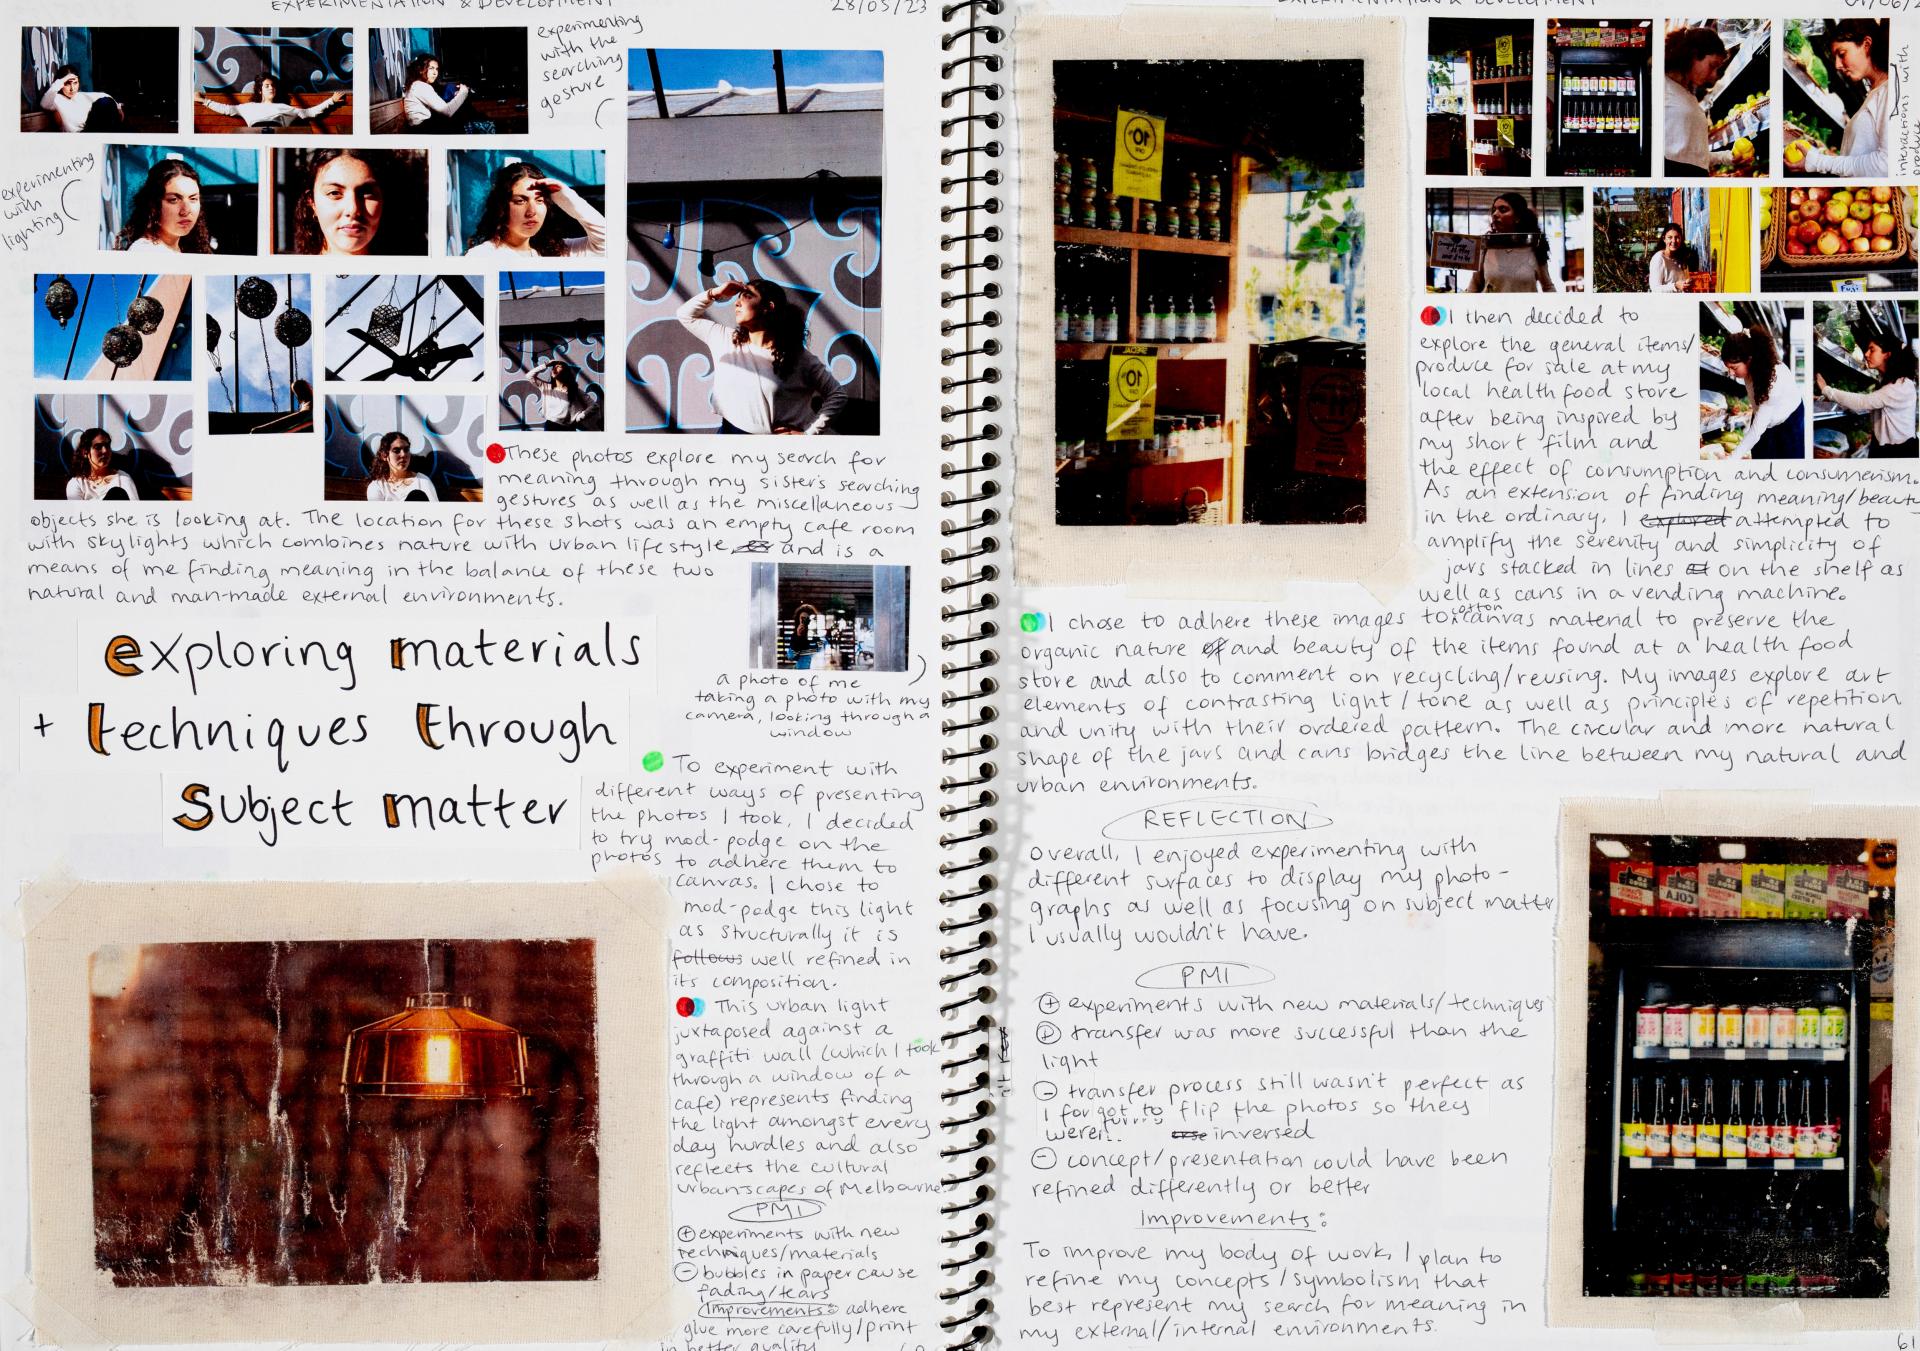 EXPERIMENTATION & DEVELOPMENT
28/05/23
experimenting
with the
searching
gesture
experimenting
with
lighting
These photos explore my search for
meaning through my sister's searching
gestures as well as the miscellaneous
objects she is looking at. The location for these shots was an empty cafe room
with skylights which combines nature with urban lifestyle and is a
means of me finding meaning in the balance of these two
natural and man-made external environments.
a photo of me
taking a photo with my
camera, looking through a
window
exploring materials
+ techniques through
subject matter
To experiment with
different ways of presenting
the photos I took, I decided
to try mod-podge on the
photos to adhere them to
canvas. I chose to
mod-podge this light
as structurally it is
follows well refined in
its composition.
This urban light
juxtaposed against a
graffiti wall (which I took
through a window of a
cafe) represents finding
the light amongst every
day hurdles and also
reflects the cultural
urbanscapes of Melbourne.
PMI
+ experiments with new
techniques/materials
- bubbles in paper cause
fading/tears
Improvements: adhere
glue more carefully/print
in better quality
EXPERIMENTATION & DEVELOPMENT
interactions with
produce
10%
OFF
SPECIAL
10%
OFF
Fuji
I then decided to
explore the general items/
produce for sale at my
local health food store
after being inspired by
my short film and
the effect of consumption and consumerism.
As an extension of finding meaning/beauty
in the ordinary, I explored attempted to
amplify the serenity and simplicity of
jars stacked in lines on the shelf as
well as cans in a vending machine.
I chose to adhere these images to cotton canvas material to preserve the
organic nature of and beauty of the items found at a health food
store and also to comment on recycling/reusing. My images explore art
elements of contrasting light/tone as well as principles of repetition
and unity with their ordered pattern. The circular and more natural
shape of the jars and cans bridges the line between my natural and
urban environments.
REFLECTION
Overall, I enjoyed experimenting with
different surfaces to display my photo-
graphs as well as focusing on subject matter
I usually wouldn't have.
PMI
+ experiments with new materials/techniques
P transfer was more successful than the
light
- transfer process still wasn't perfect as
I forgot to flip the photos so they
inversed
- concept/presentation could have been
refined differently or better
Improvements:
To improve my body of work, I plan to
refine my concepts/symbolism that
best represent my search for meaning in
my external/internal environments.
COLA
61